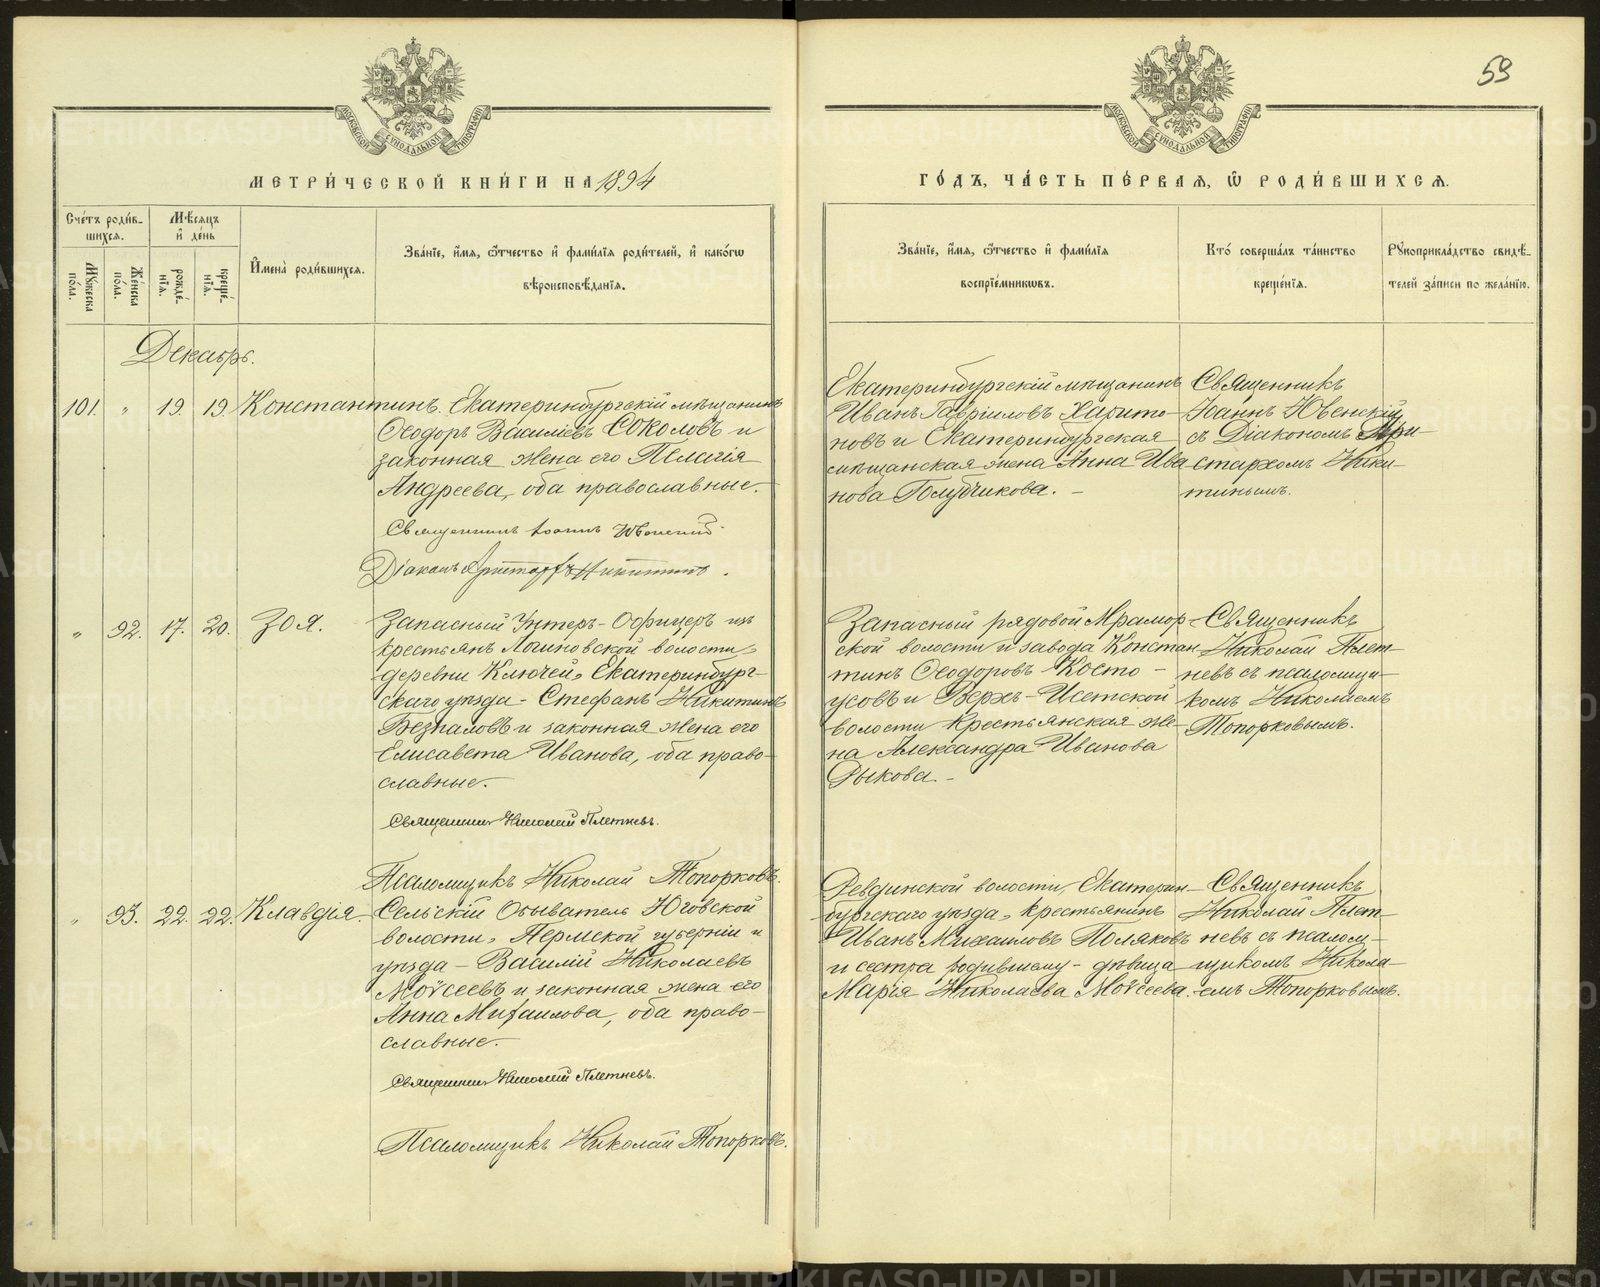 59
МОСКОВСКОЙ СѴНОДАЛЬНОЙ ТИПОГРАФІИ
МОСКОВСКОЙ СѴНОДАЛЬНОЙ ТИПОГРАФІИ
МЕТРИ́ЧЕСКОЙ КНИ́ГИ НА 1894
ГО́ДЪ, ЧА́СТЬ ПЕ́РВАѦ, Ѽ РОДИ́ВШИХСѦ.
Сче́тъ роди́в-
шихсѧ.
Мꙋ́жеска по́ла.
Же́нска по́ла.
Мѣ́сѧцъ
и҆ де́нь
рожде́-
нїѧ.
креще́-
нїѧ.
И҆мена̀ роди́вшихсѧ.
Зва́нїе, и҆́мѧ, ѻ҆́тчество и҆ фами́лїѧ роди́телей, и҆ како́гѡ
вѣроисповѣ́данїѧ.
Зва́нїе, и҆́мѧ, ѻ҆́тчество и҆ фами́лїѧ
воспрїе́мникѡвъ.
Кто̀ соверша́лъ та́инство
креще́нїѧ.
Рꙋкоприкла́дство свидѣ́-
телей за́писи по жела́нїю.
Декабрь.
101. " 19. 19. Константинъ. Екатеринбургскій мѣщанинъ
Ѳеодоръ Василіевъ Соколовъ и
законная жена его Пелагія
Андреева, оба православные.
Священникъ Іоаннъ Ювенскій
Діаконъ Аристархъ Никитинъ.
Екатеринбургскій мѣщанинъ
Иванъ Гавріиловъ Харито-
новъ и Екатеринбургская
мѣщанская жена Анна Ива
нова Голубчикова. -
Священникъ
Іоаннъ Ювенскій
съ Діакономъ Ари-
стархомъ Ники-
тинымъ.
" 92. 17. 20. Зоя. Запасный Унтеръ-Офицеръ изъ
крестьянъ Логиновской волости,
деревни Ключей, Екатеринбург-
скаго уѣзда - Стефанъ Никитинъ
Безпаловъ и законная жена его
Елисавета Иванова, оба право-
славные.
Священникъ Николай Плетневъ.
Псаломщикъ Николай Топорковъ.
Запасный рядовой Мрамор-
ской волости и завода Констан
тинъ Ѳеодоровъ Косто-
усовъ и Верхъ-Исетской
волости крестьянская же-
на Александра Иванова
Рыкова. -
Священникъ
Николай Плет-
невъ съ псаломщи-
комъ Николаемъ
Топорковымъ.
" 93. 22. 22. Клавдія. Сельскій Обыватель Юговской
волости, Пермской губерніи и
уѣзда - Василій Николаевъ
Моѵсеевъ и законная жена его
Анна Михаилова, оба право-
славные.
Священникъ Николай Плетневъ.
Псаломщикъ Николай Топорковъ.
Ревдинской волости, Екатерин-
бургскаго уѣзда, крестьянинъ
Иванъ Михаиловъ Поляковъ
и сестра родившему - дѣвица
Марія Николаева Моѵсеева.
Священникъ
Николай Плет-
невъ съ псалом-
щикомъ Никола-
емъ Топорковымъ.
METRIKI.GASO-URAL.RU